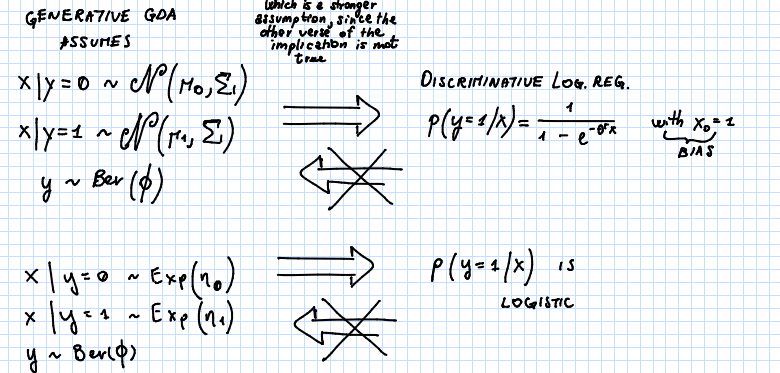 GENERATIVE GDA
ASSUMES
which is a stronger
assumption, since the
other verse of the
implication is not
true
x|y=0 ~ N(μ₀, Σ)
x|y=1 ~ N(μ₁, Σ)
y ~ Ber(ϕ)
DISCRIMINATIVE LOG. REG.
p(y=1/x) = 1 / (1 - e^(-θᵀx)) with x₀=1
BIAS
x | y=0 ~ Exp(η₀)
x | y=1 ~ Exp(η₁)
y ~ Ber(ϕ)
p(y=1/x) IS
LOGISTIC